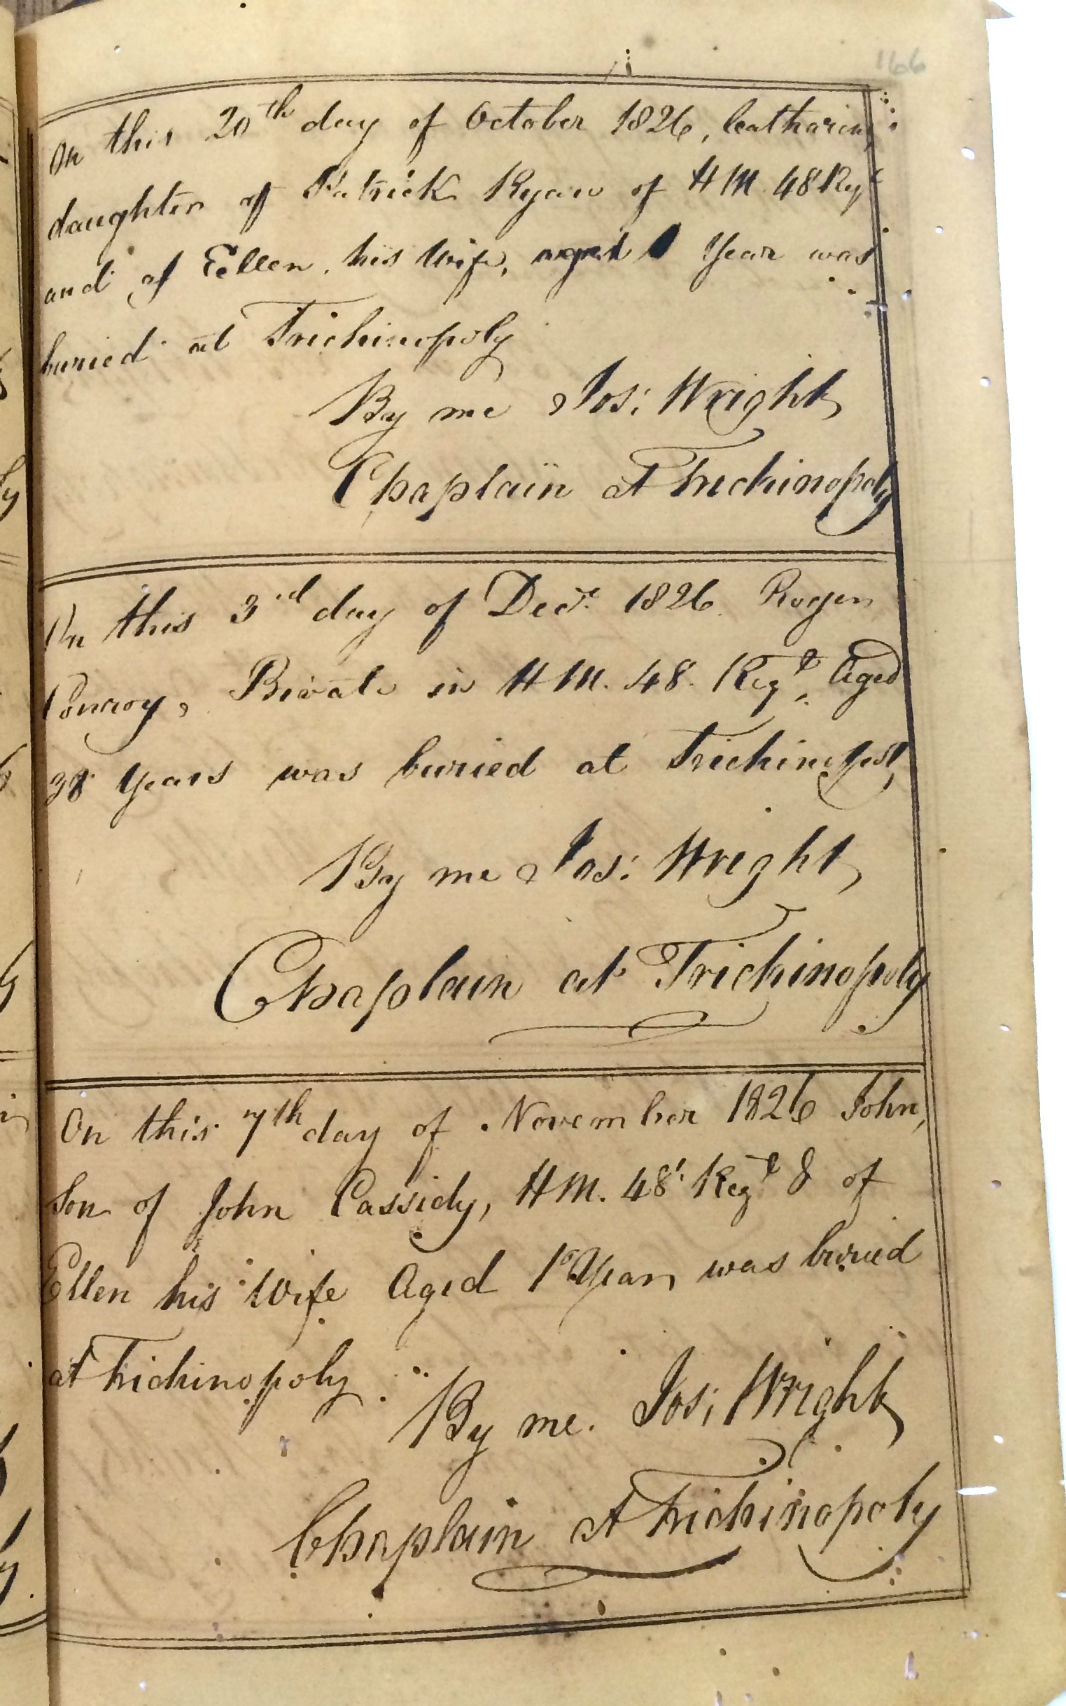 166
On this 20th day of October 1826, Catharine
daughter of Patrick Ryan of HM 48 Regt
and of Ellen his Wife, aged 1 Year was
buried at Trichinopoly
By me Jos: Wright
Chaplain at Trichinopoly
On this 3rd day of Decr. 1826 Roger
Conroy, Private in HM. 48. Regt. Aged
38 Years was buried at Trichinopoly
By me Jos: Wright
Chaplain at Trichinopoly
On this 7th day of November 1826 John,
Son of John Cassidy, HM. 48 Regt & of
Ellen his Wife Aged 1 Year, was buried
at Trichinopoly
By me. Jos: Wright
Chaplain at Trichinopoly